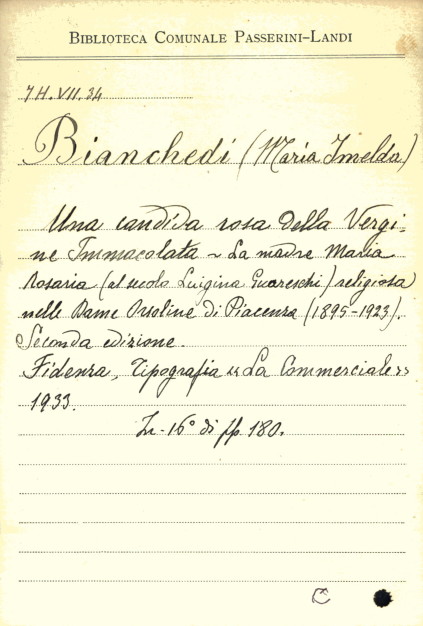 BIBLIOTECA COMUNALE PASSERINI-LANDI
7H.VII.34
Bianchedi (Maria Imelda)
Una candida rosa della Vergi-
ne Immacolata ~ La madre Maria
Rosaria (al secolo Luigina Guareschi) religiosa
nelle Dame Orsoline di Piacenza (1895-1923).
Seconda edizione.
Fidenza, Tipografia «La Commerciale»
1933.
In-16° di pp. 180.
C